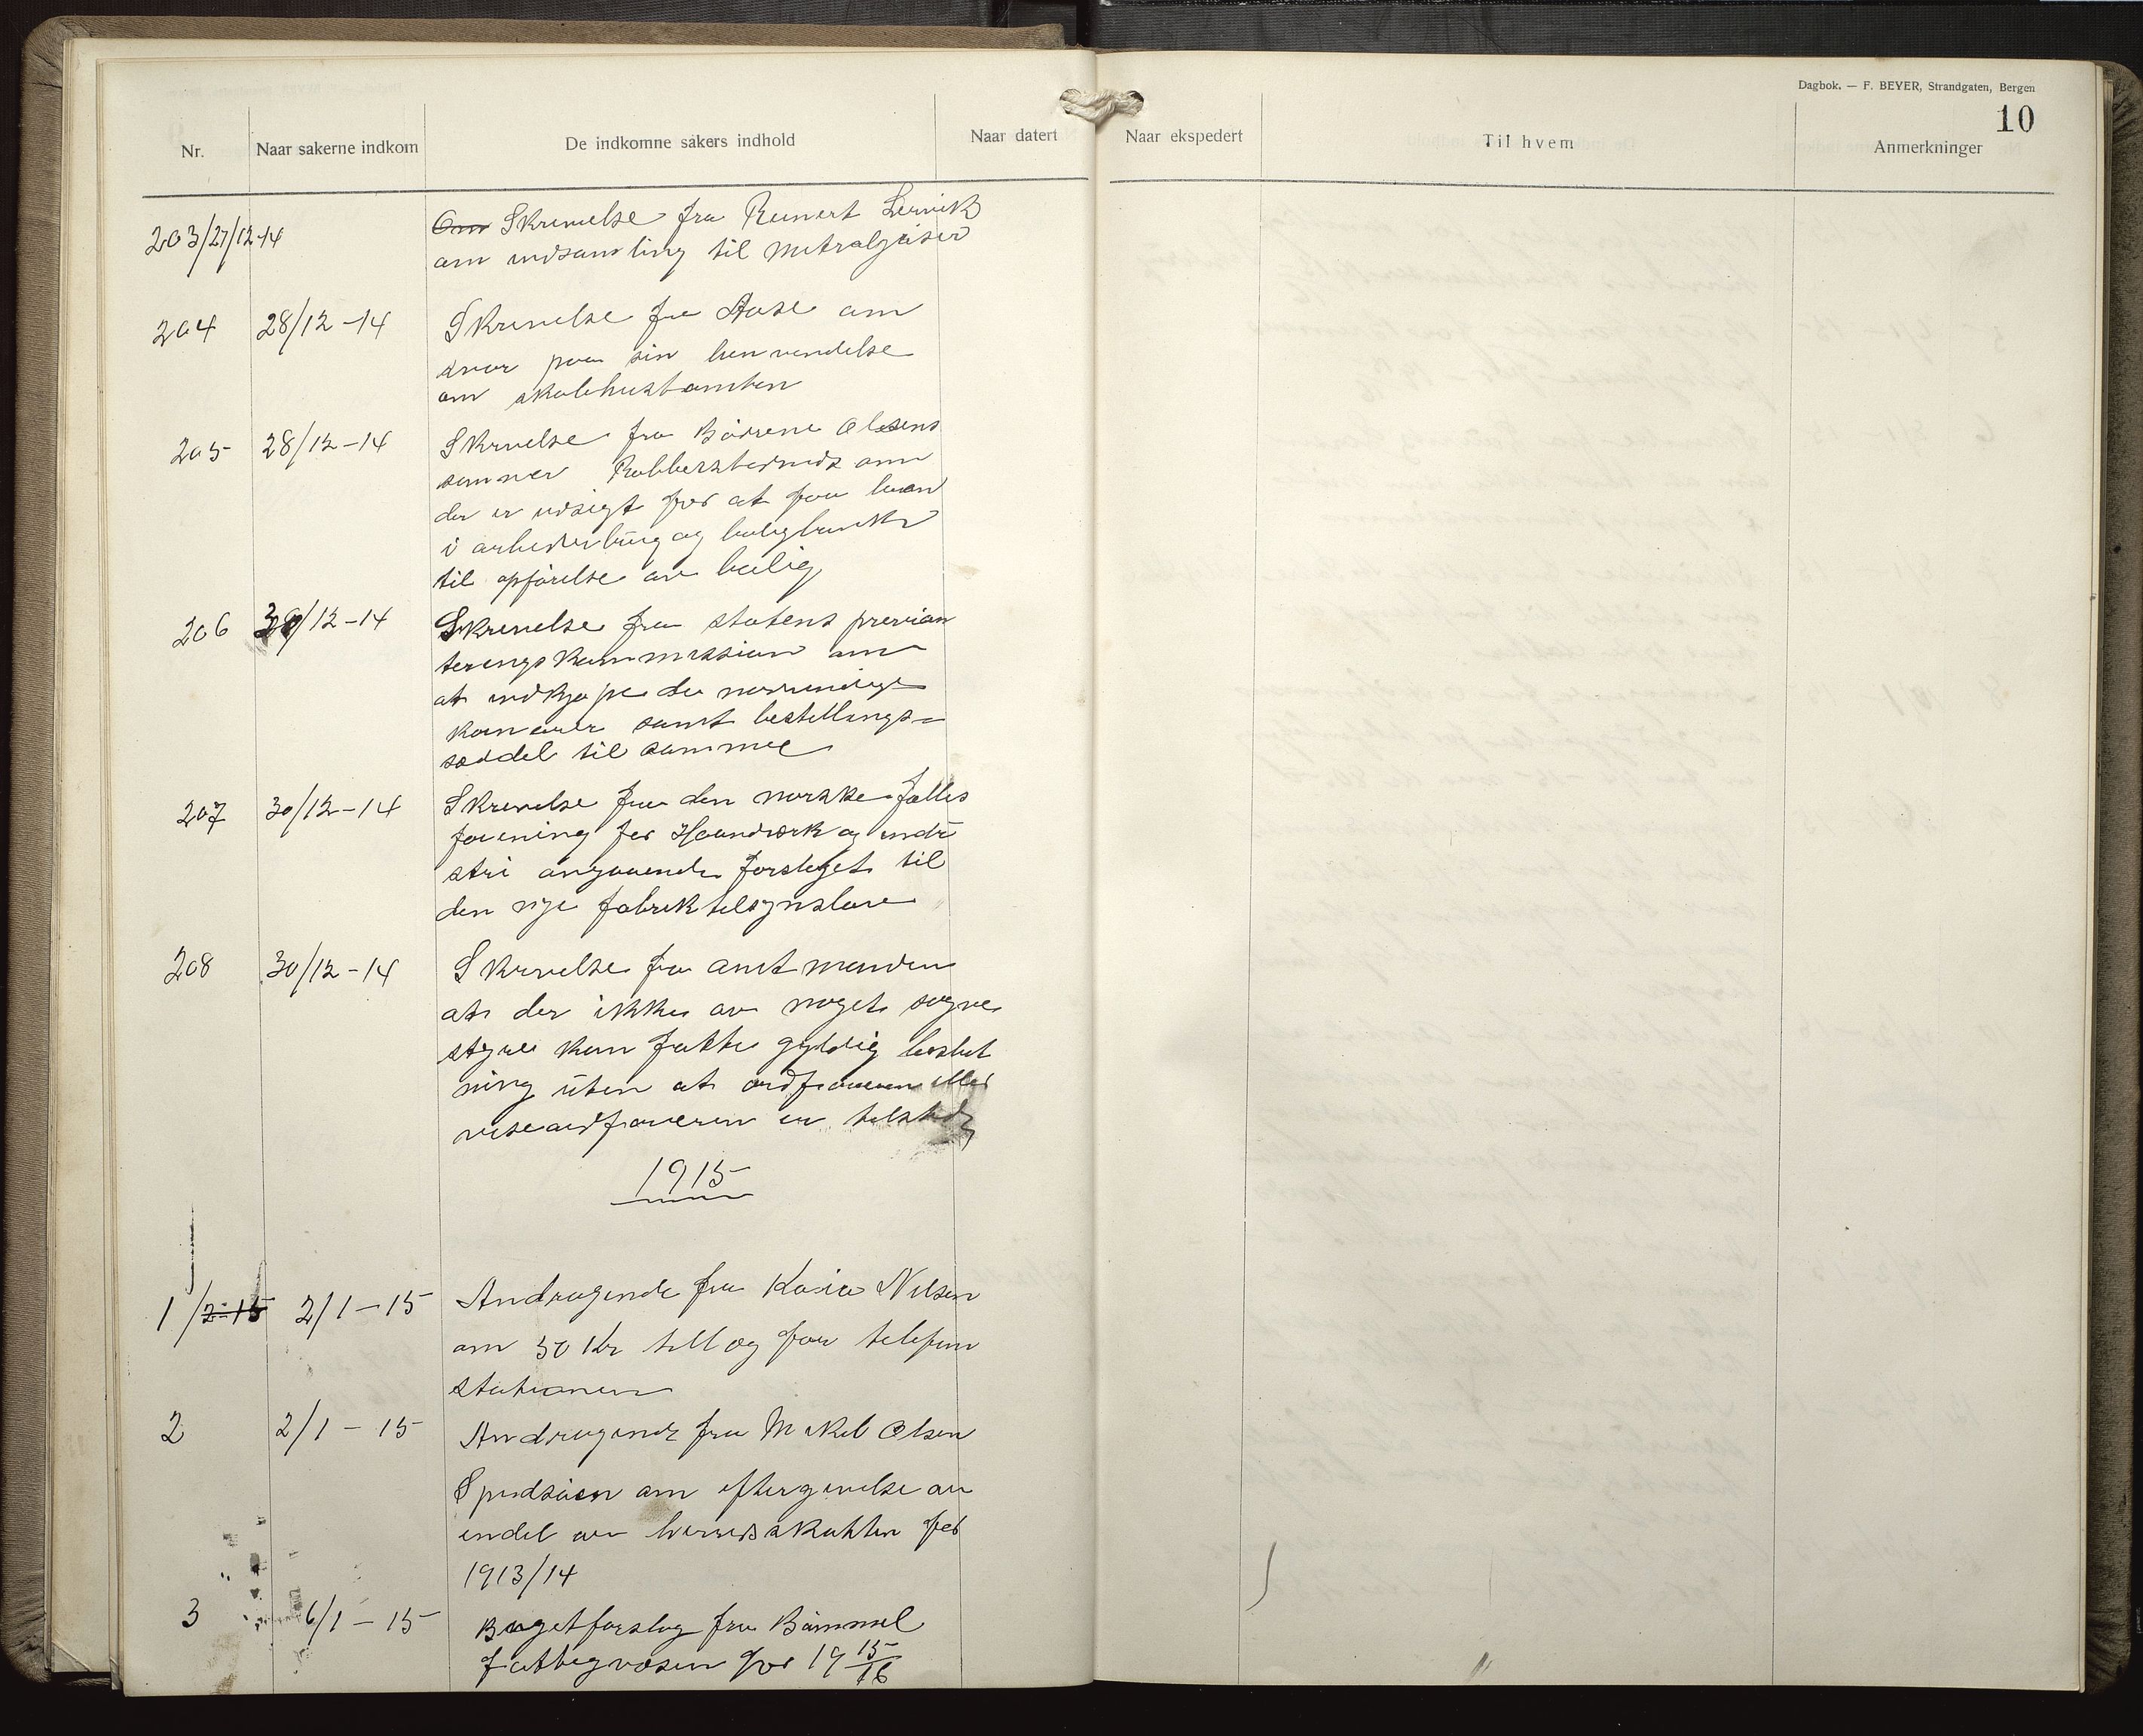 Dagbok. — F. BEYER, Strandgaten, Bergen
10
Nr. Naar sakerne indkom De indkomne sakers indhold Naar datert Naar ekspedert Til hvem Anmerkninger
203/27/12-14 Om Skrivelse fra Reinert Lervik
om indsamling til mitraljøser
204 28/12-14 Skrivelse fra Aase om
svar paa sin henvendelse
om skolehustomten
205 28/12-14 Skrivelse fra Bådrene Olesens
sønner Rubbestadnes om
der er udsigt for at faa laan
i arbeiderbrug og boligbanke
til opførelse av bolig
206 30/12-14 Skrivelse fra statens provian
teringskommission om
at indkjøpe de nødvendige
kornvarer samt bestillings=
seddel til samme
207 30/12-14 Skrivelse fra den norske fælles
forening for Haandverk og indu
stri angaaende forslaget til
den nye fabriktilsynslove
208 30/12-14 Skrivelse fra amtmanden
at der ikke av noget sogne
styre kan fatte gyldig beslut
ning uten at ordføreren eller
viseordføreren er tilsted
1915
1 /2-15 2/1-15 Andragende fra Karia Nilsen
om 50 Kr tillæg for telefon
stationen
2 2/1-15 Andragende fra Mikel Olsen
Spidsøen om eftergivelse av
endel av herredsskatten for
1913/14
3 6/1-15 Bugetforslag fra Bømmel
fattigvæsen for 19 15/16